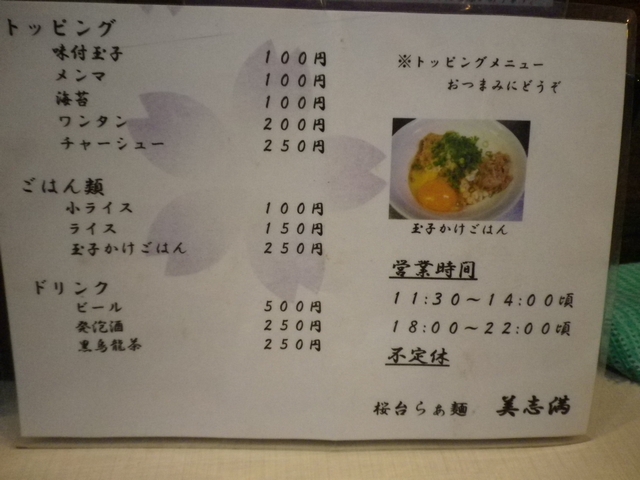 トッピング
味付玉子 100円
メンマ 100円
海苔 100円
ワンタン 200円
チャーシュー 250円
ごはん類
小ライス 100円
ライス 150円
玉子かけごはん 250円
ドリンク
ビール 500円
発泡酒 250円
黒烏龍茶 250円
※トッピングメニュー
おつまみにどうぞ
玉子かけごはん
営業時間
11:30～14:00頃
18:00～22:00頃
不定休
桜台らぁ麺 美志満